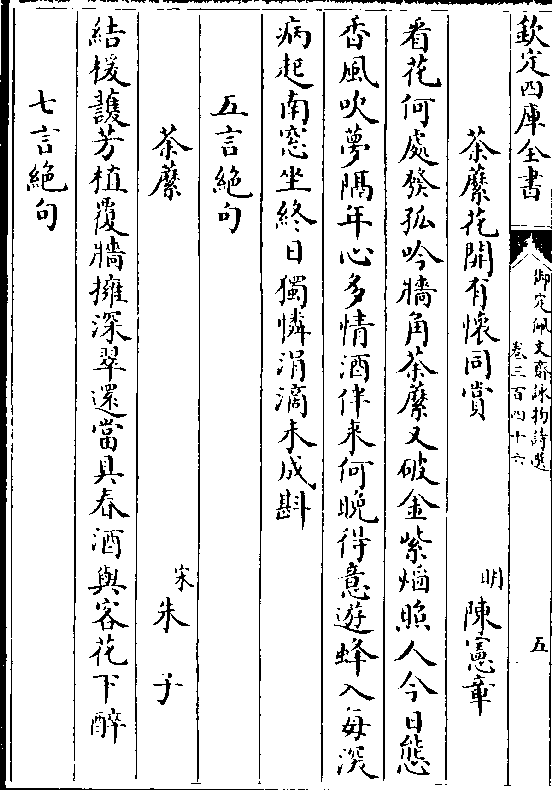 欽定四庫全書
御定佩文齋詠物詩選
卷三百四十六
五
荼蘼花開有懷同賞
明
陳憲章
看花何處發孤吟牆角荼蘼又破金紫燄照人今日態
香風吹夢隔年心多情酒伴来何晚得意遊蜂入每深
病起南窓坐終日獨憐涓滴未成斟
五言絶句
荼蘼
宋
朱子
結椶護芳植覆牆擁深翠還當具春酒與客花下醉
七言絶句